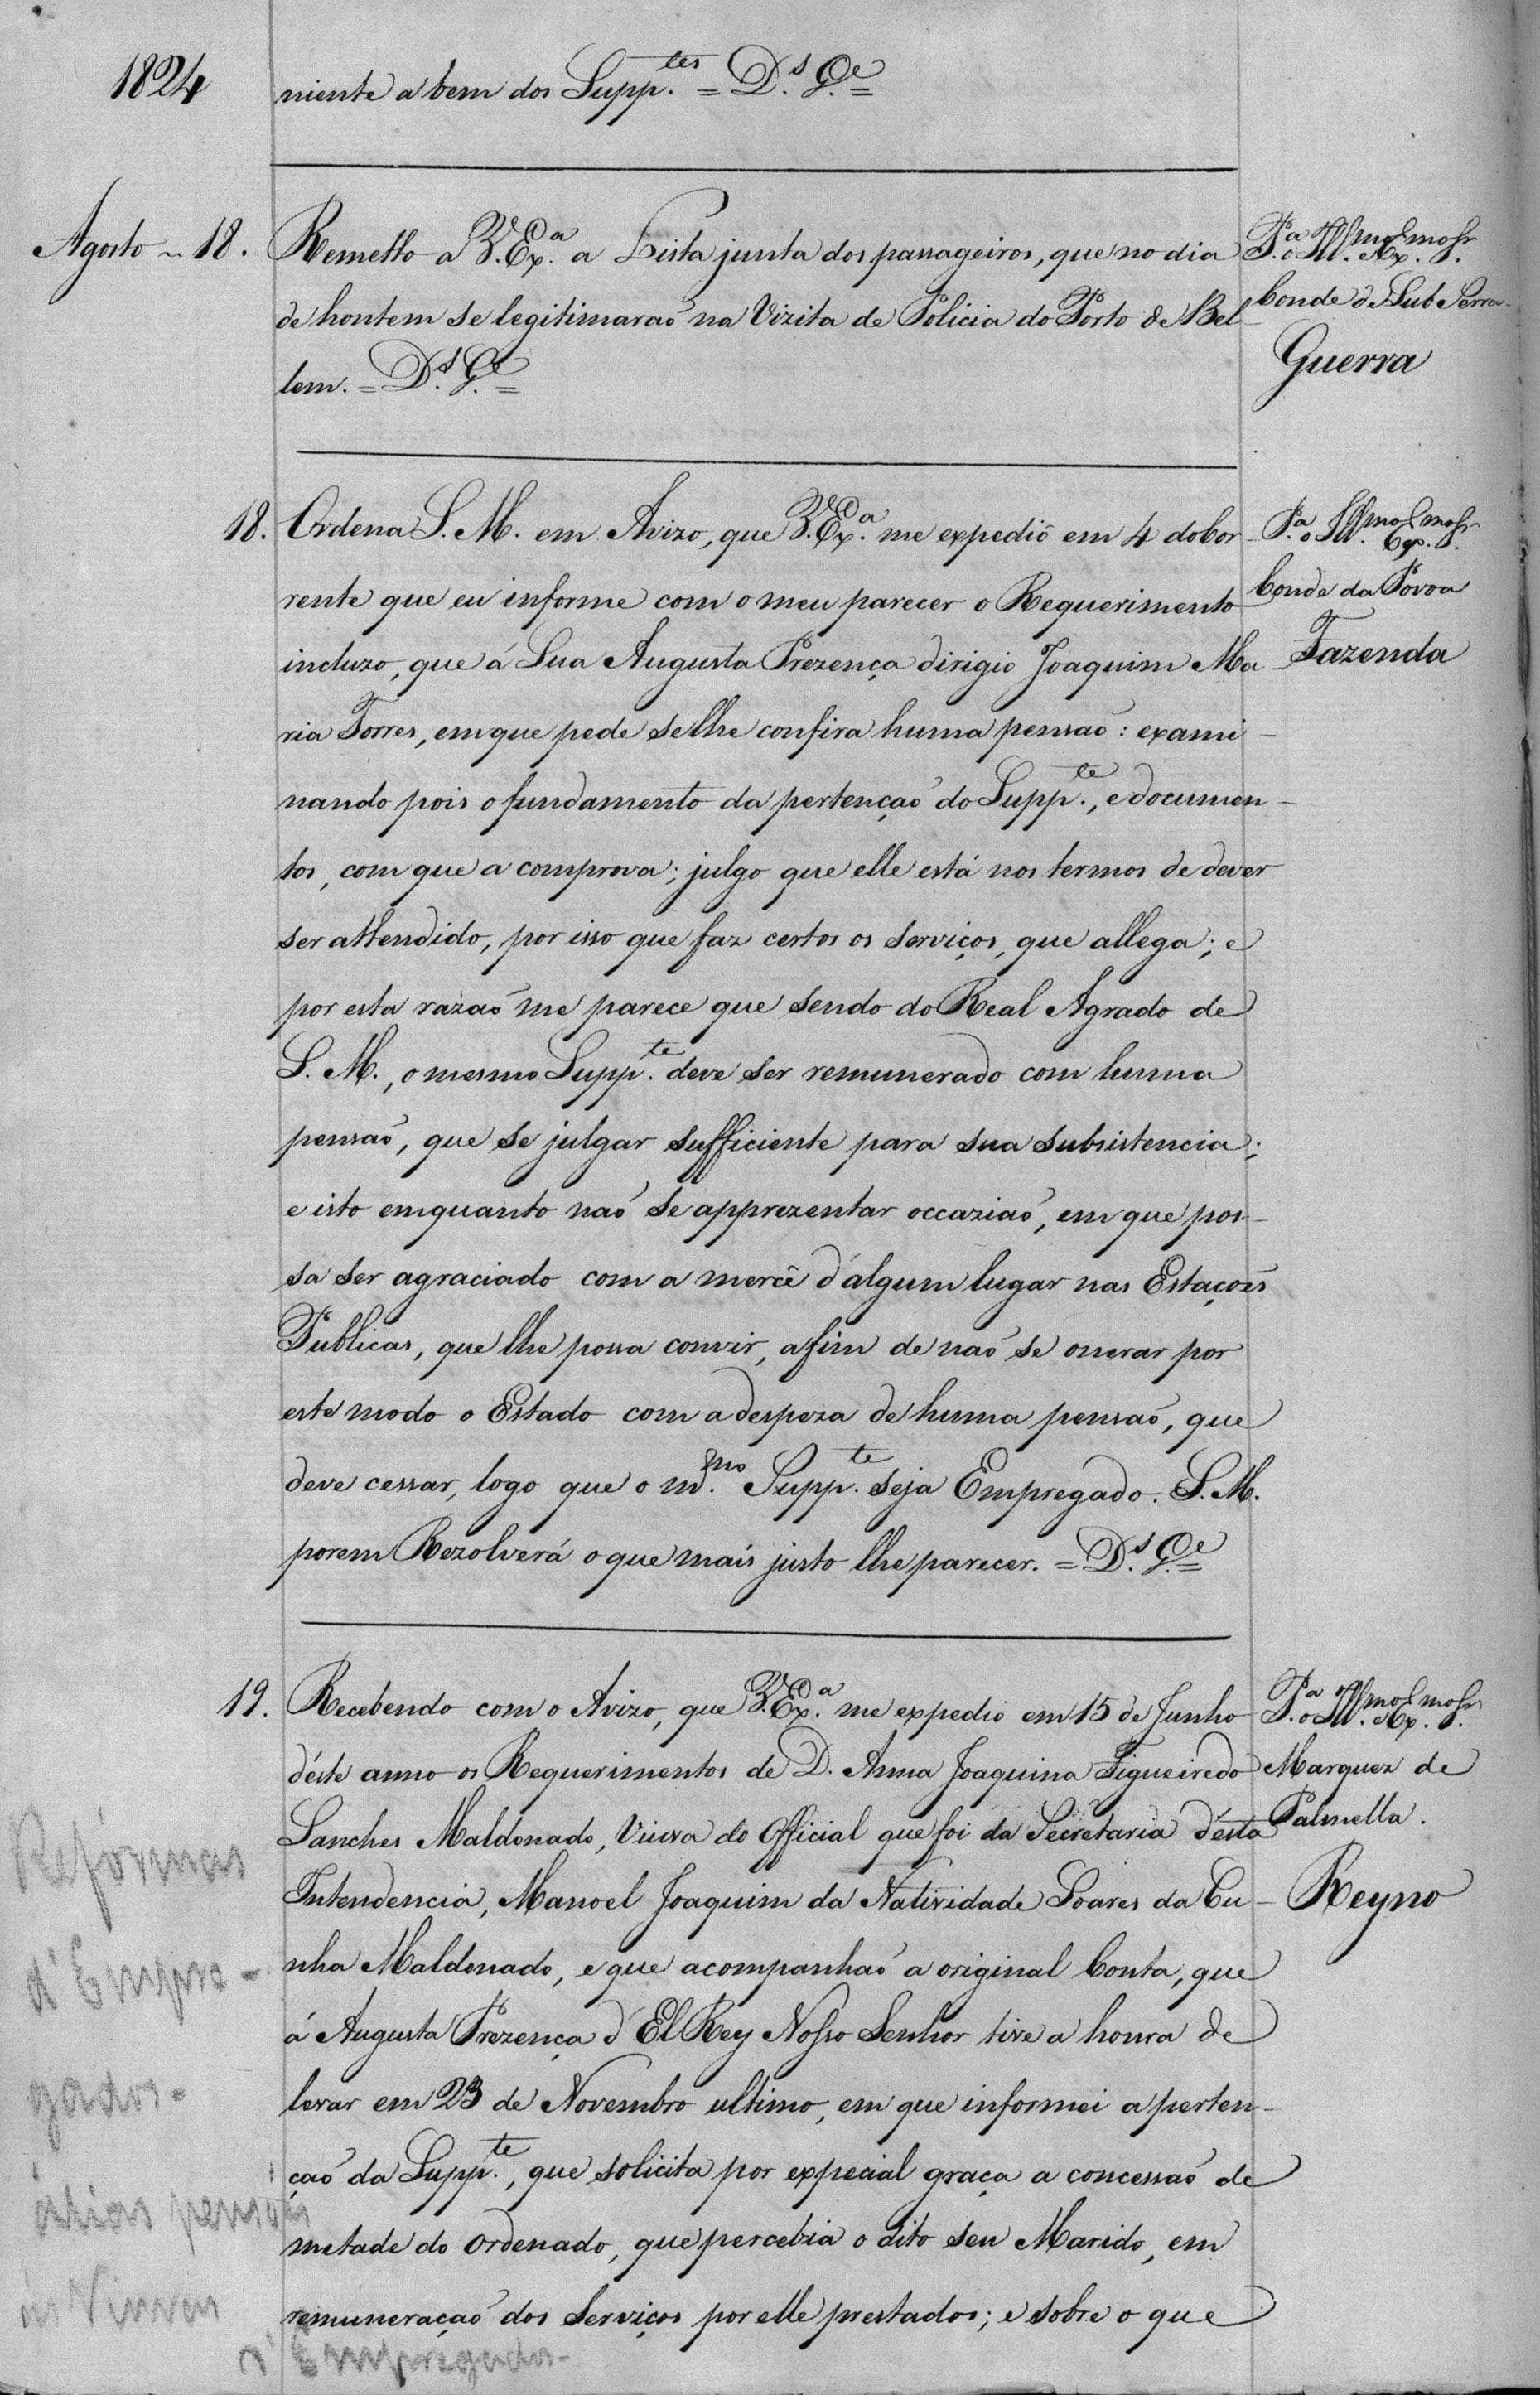 1824
niente a bem dos Supp.tes = D.s G.e =
Agosto ~ 18.
Remetto a V. Ex.a a Lista junta dos passageiros, que no dia
de hontem se legitimaraõ na Vizita de Policia do Porto de Bel-
lem. = D.s G.e =
P.a o Ill.mo Ex.mo Sr.
Conde de Sub Serra
Guerra
18.
Ordena S. M. em Avizo, que V. Ex.a me expedio em 4 do Cor-
rente que eu informe com o meu parecer o Requerimento
incluzo, que á Sua Augusta Prezença dirigio Joaquim Ma-
ria Torres, em que pede se lhe confira huma pensaõ: exami-
nando pois o fundamento da pertençaõ do Supp.te, e documen-
tos, com que a comprova; julgo que elle está nos termos de dever
ser attendido, por isso que faz certos os serviços, que allega; e
por esta razaõ me parece que sendo do Real Agrado de
S. M., o mesmo Supp.te deve ser remunerado com huma
pensaõ, que se julgar sufficiente para sua subsistencia;
e isto emquanto naõ se apprezentar occaziaõ, em que pos-
sa ser agraciado com a mercê d'algum lugar nas Estaçoẽs
Publicas, que lhe possa convir, afim de naõ se onerar por
este modo o Estado com a despeza de huma pensaõ, que
deve cessar, logo que o m.mo Supp.te seja Empregado. S. M.
porem Rezolverá o que mais justo lhe parecer. = D.s G.e =
P.a o Ill.mo Ex.mo Sr.
Conde da Povoa
Fazenda
19.
Recebendo com o Avizo, que V. Ex.a me expedio em 15 de Junho
d'éste anno os Requerimentos de D. Anna Joaquina Figueiredo
Sanches Maldonado, Viuva do Official que foi da Secretaria d'ésta
Intendencia, Manoel Joaquim da Natividade Soares da Cu-
nha Maldonado, e que acompanhaõ a original Conta, que
á Augusta Prezença d'El Rey Nosso Senhor tive a honra de
levar em 23 de Novembro ultimo, em que informei a perten-
çaõ da Supp.te, que solicita por expecial graça a concessaõ de
metade do Ordenado, que percebia o dito seu Marido, em
remuneraçaõ dos Serviços por elle prestados; e sobre o que
P.a o Ill.mo Ex.mo Sr.
Marquez de
Palmella.
Reyno
Refórmas
d'Empre-
gados -
pensoẽs
ás Viuvas
d'Empregados -